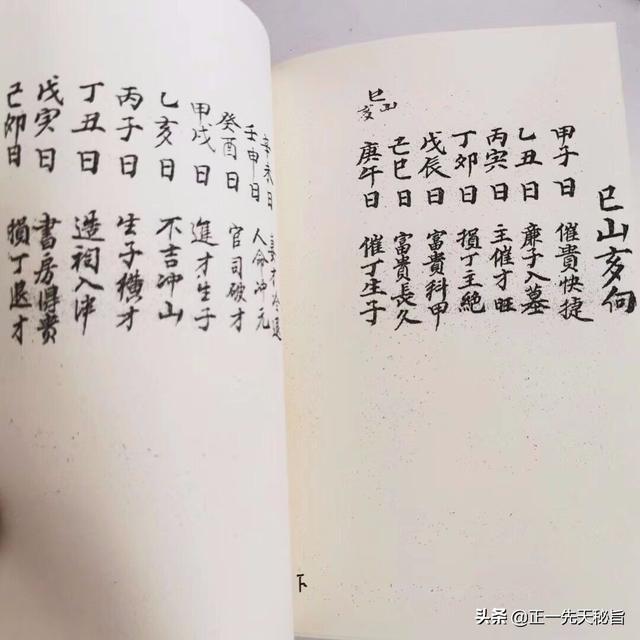 巳山亥向
甲子日 催貴快捷
乙丑日 廉子入墓
丙寅日 主催才旺
丁卯日 損丁主絕
戊辰日 富貴科甲
己巳日 富貴長久
庚午日 催丁生子
巳山
亥
下
辛未日
壬申日 人命冲元
癸酉日 官司破才
甲戌日 進才生子
乙亥日 不吉冲山
丙子日 生子橫才
丁丑日 造祠入泮
戊寅日 書房傅貴
己卯日 損丁退才
头条 @正一先天秘旨